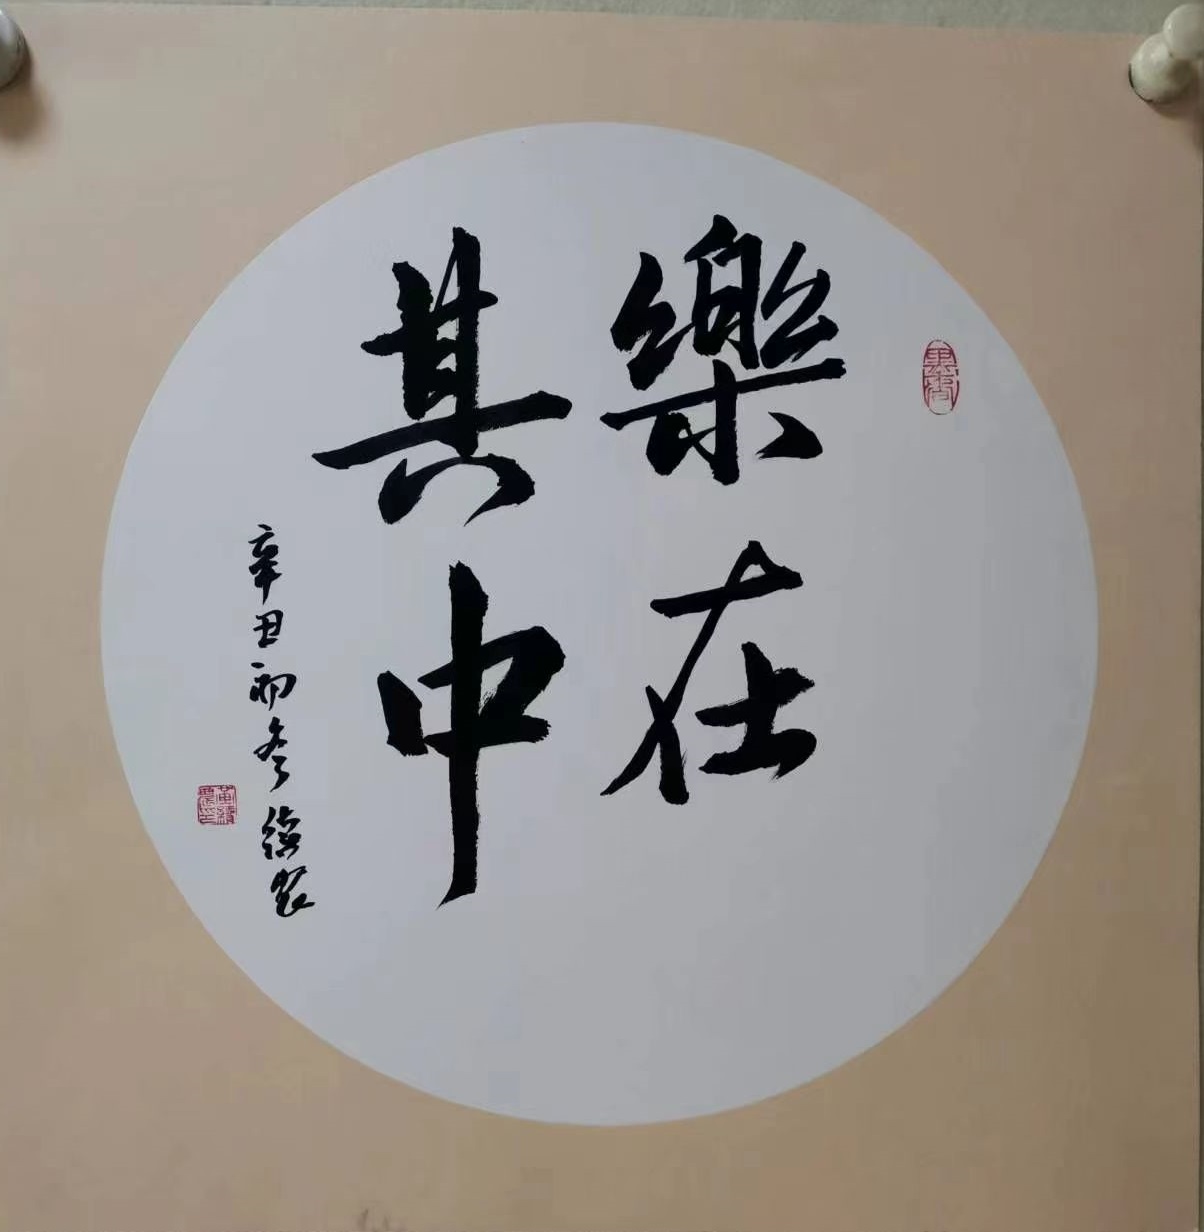 樂在
其中
辛丑初冬